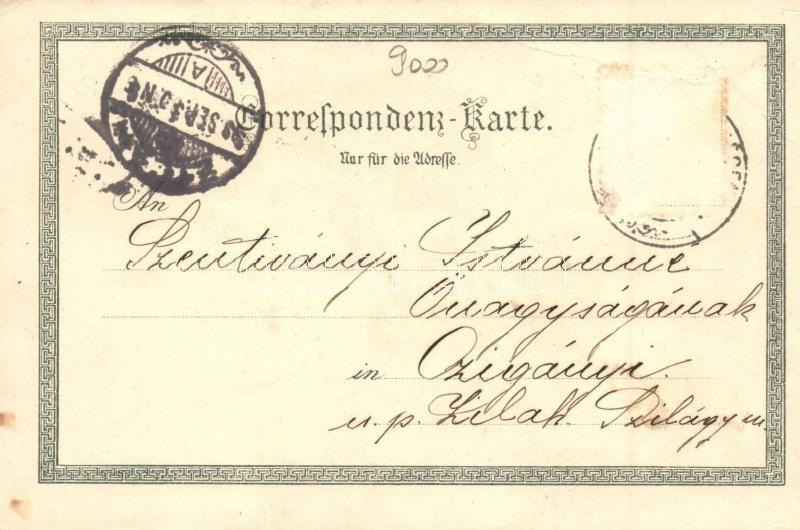 9000
Correspondenz-Karte.
Nur für die Adresse.
An
Szentiványi Istvánné
Őnagyságának
in Czigányi.
u. p. Zilah. Szilágy m.